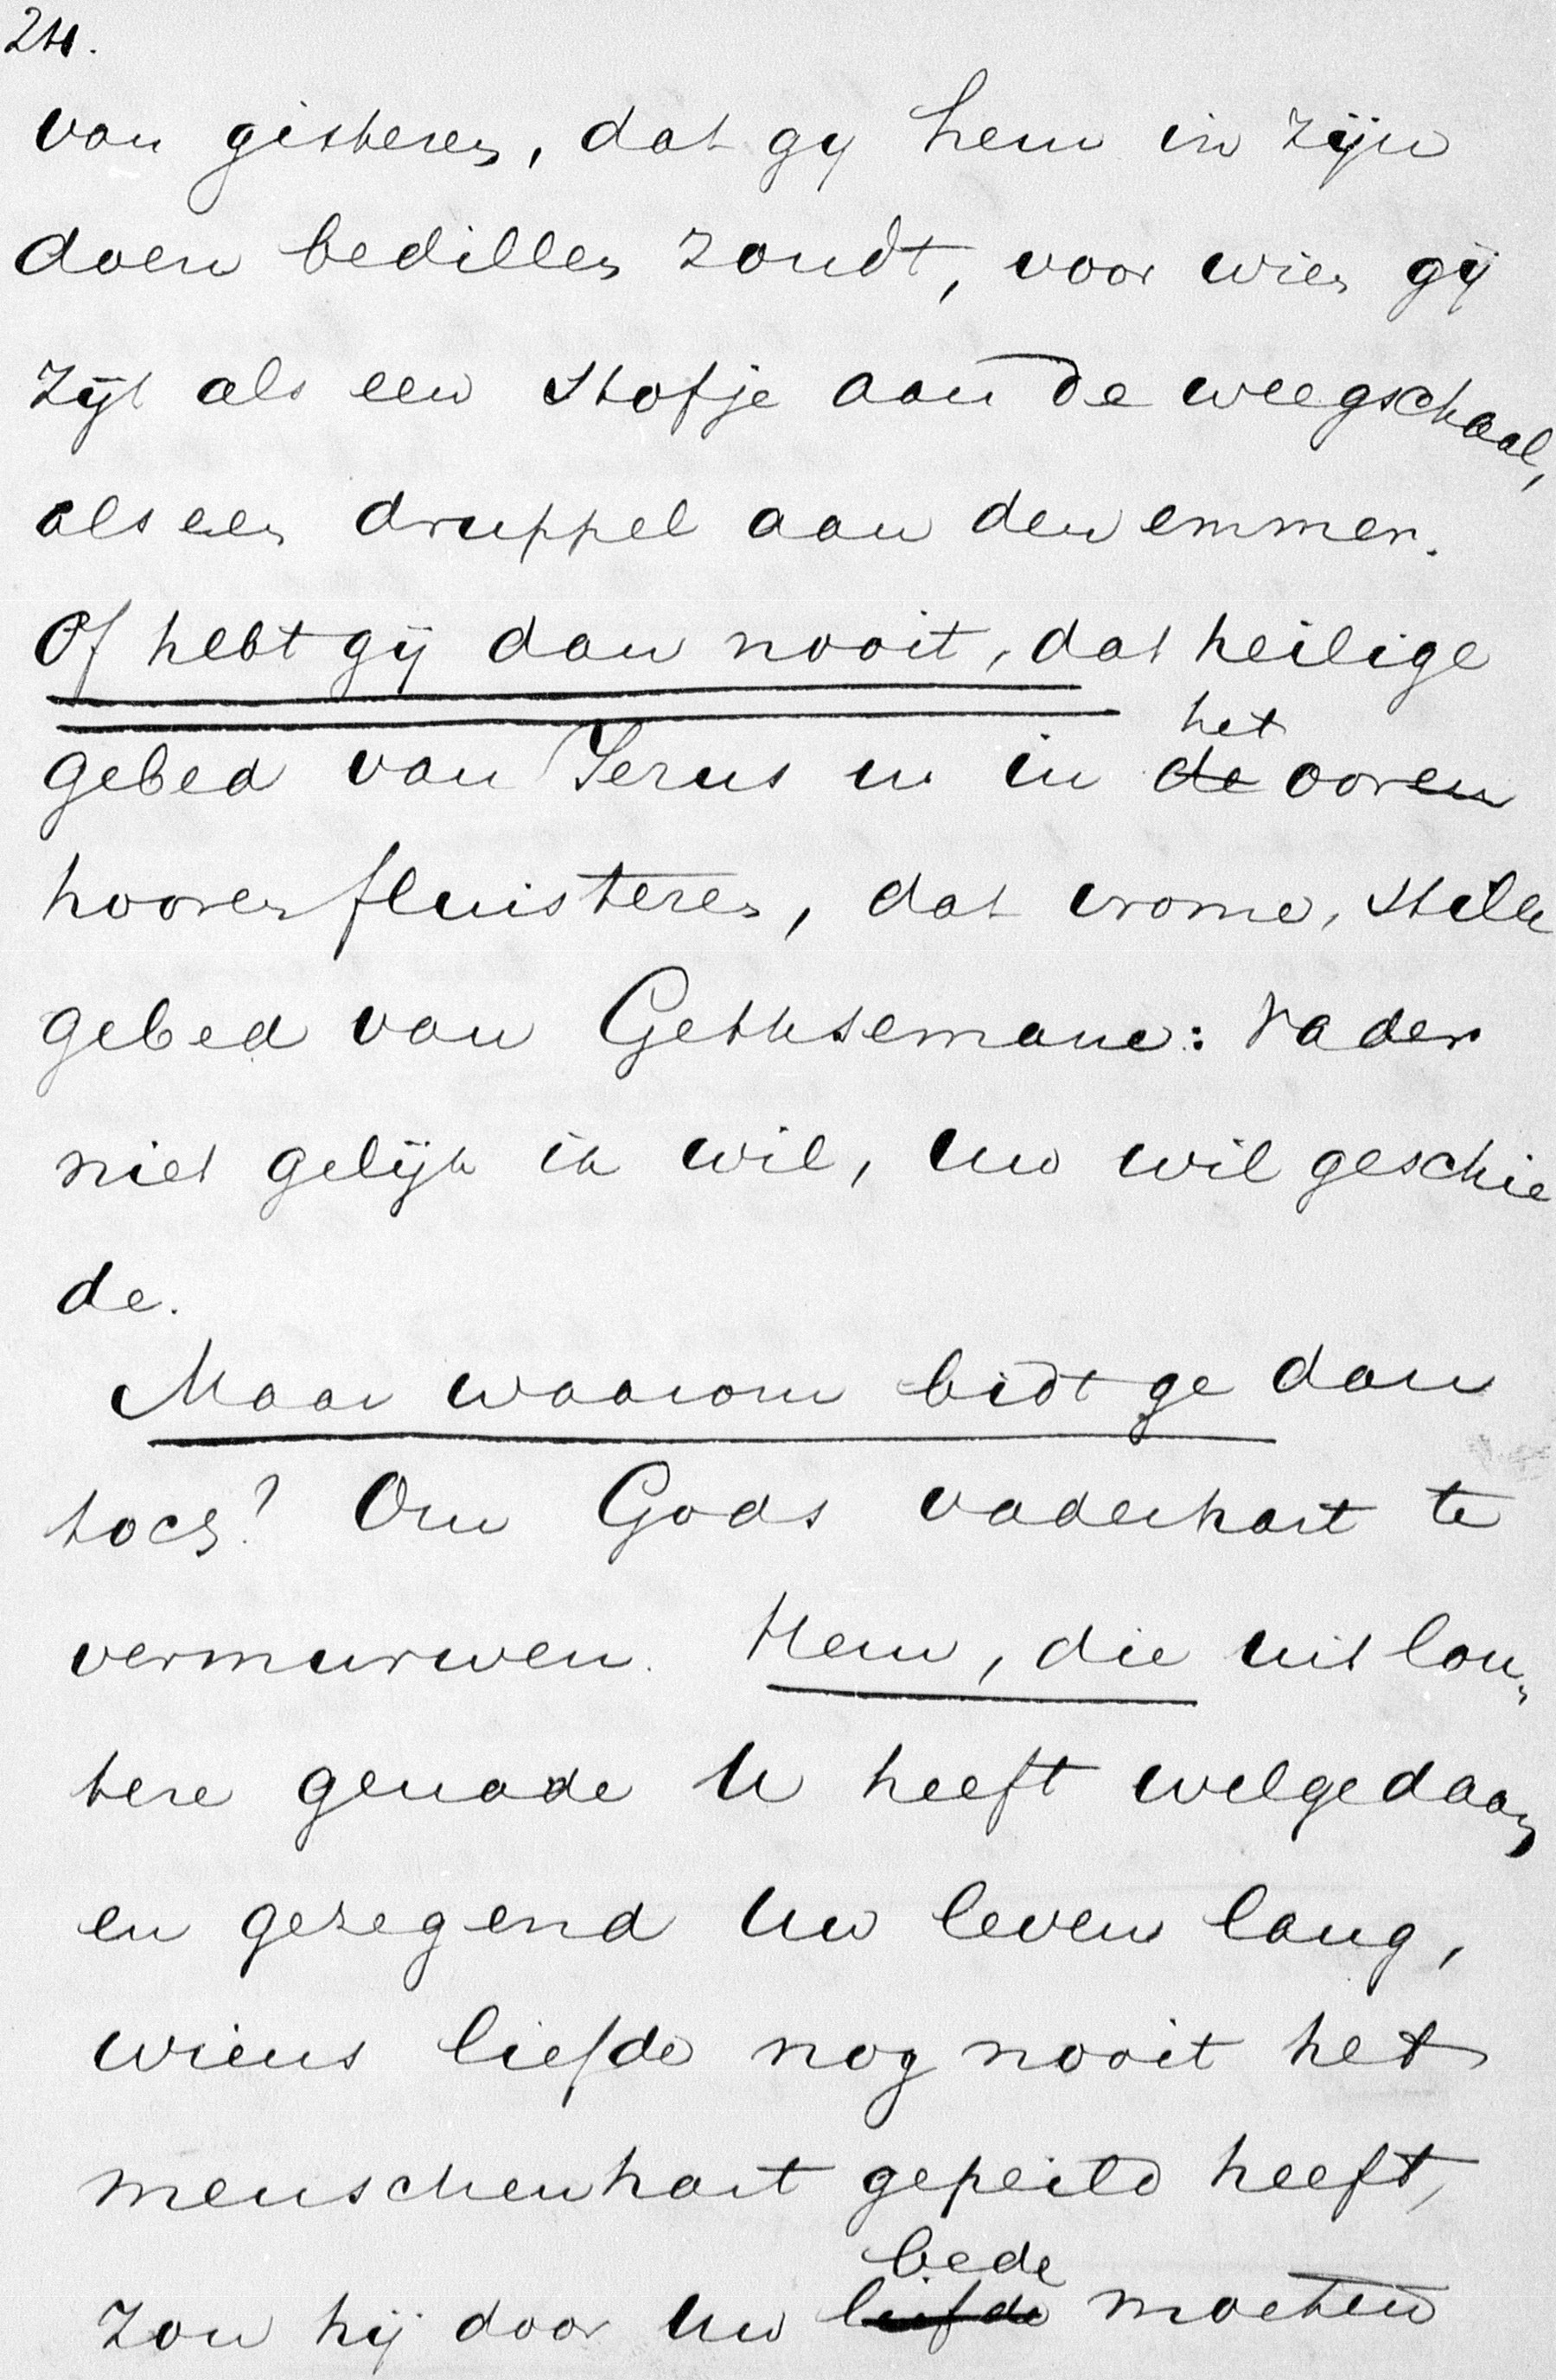 24.
van gisteren, dat gij hem in zijn
doen bedillen zoudt, voor wien gij
zijt als een stofje aan de weegschaal,
als een druppel aan den emmer.
Of hebt gij dan nooit, dat heilige
gebed van Jezus u in de het ooren
hooren fluisteren, dat vrome, stille
gebed van Gethsemane: Vader
niet gelijk ik wil, Uw wil geschie
de.
Maar waarom bidt ge dan
toch? Om Gods vaderhart te
vermurwen. Hem, die uit lou„
tere genade U heeft welgedaan
en gezegend Uw leven lang,
wiens liefde nog nooit het
menschenhart gepeild heeft,
zou hij door Uw liefde bede moeten